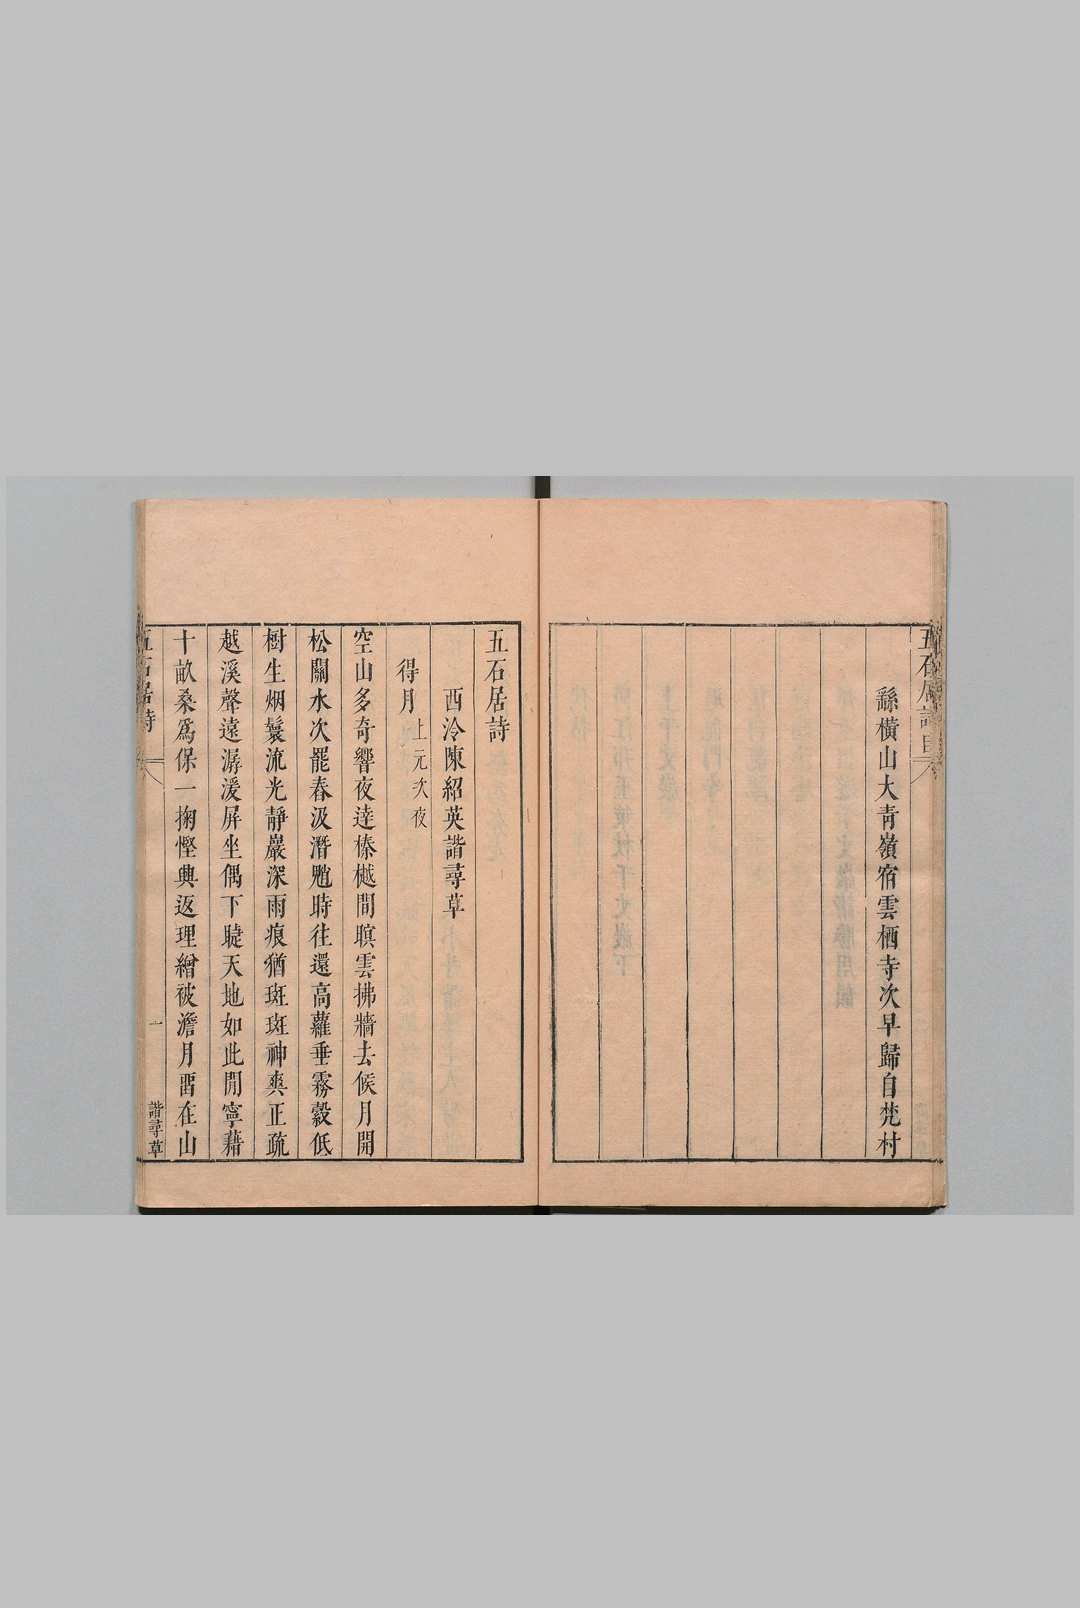 五石居詩目
繇橫山大青嶺宿雲栖寺次早歸自梵村
五石居詩
西泠陳紹英諧尋草
得月 上元次夜
空山多奇響夜達榛樾間暝雲拂牆去候月開
松關水次罷春汲潛虺時往還高蘿垂霧縠低
樹生烟鬟流光靜巖深雨痕猶斑斑神爽正疏
越溪聲遠潺湲屏坐偶下睫天地如此閒寧藉
十畝桑爲保一掬慳典返理繒被澹月畱在山
五石居詩
一
諧尋草